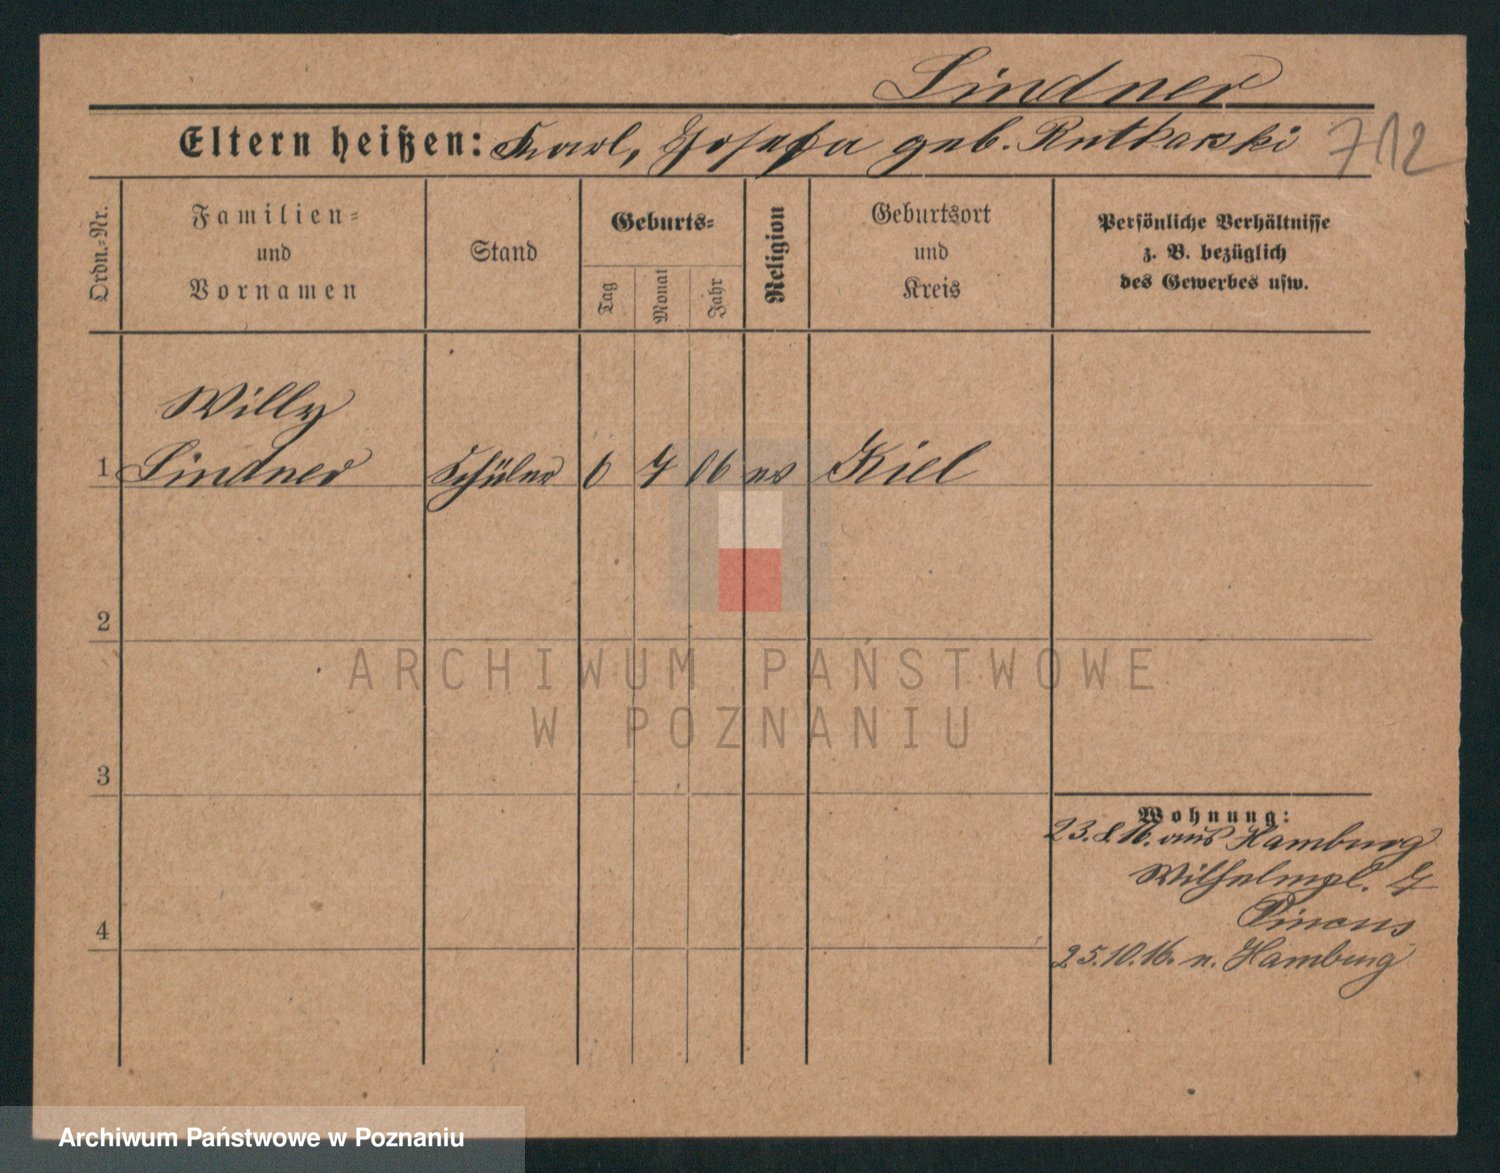 Lindner
Eltern heißen: Karl, Josefa geb. Rutkowski 712
Ordn.-Nr.
Familien-
und
Vornamen
Stand
Geburts-
Tag
Monat
Jahr
Religion
Geburtsort
und
Kreis
Persönliche Verhältnisse
z. B. bezüglich
des Gewerbes usw.
Willy
1 Lindner Schüler 6 7 06 ev Kiel
2
ARCHIWUM PAŃSTWOWE
W POZNANIU
3
Wohnung:
23.8.16. aus Hamburg
Wilhelmpl. 7
Pincus
4
25.10.16. n. Hamburg
Archiwum Państwowe w Poznaniu